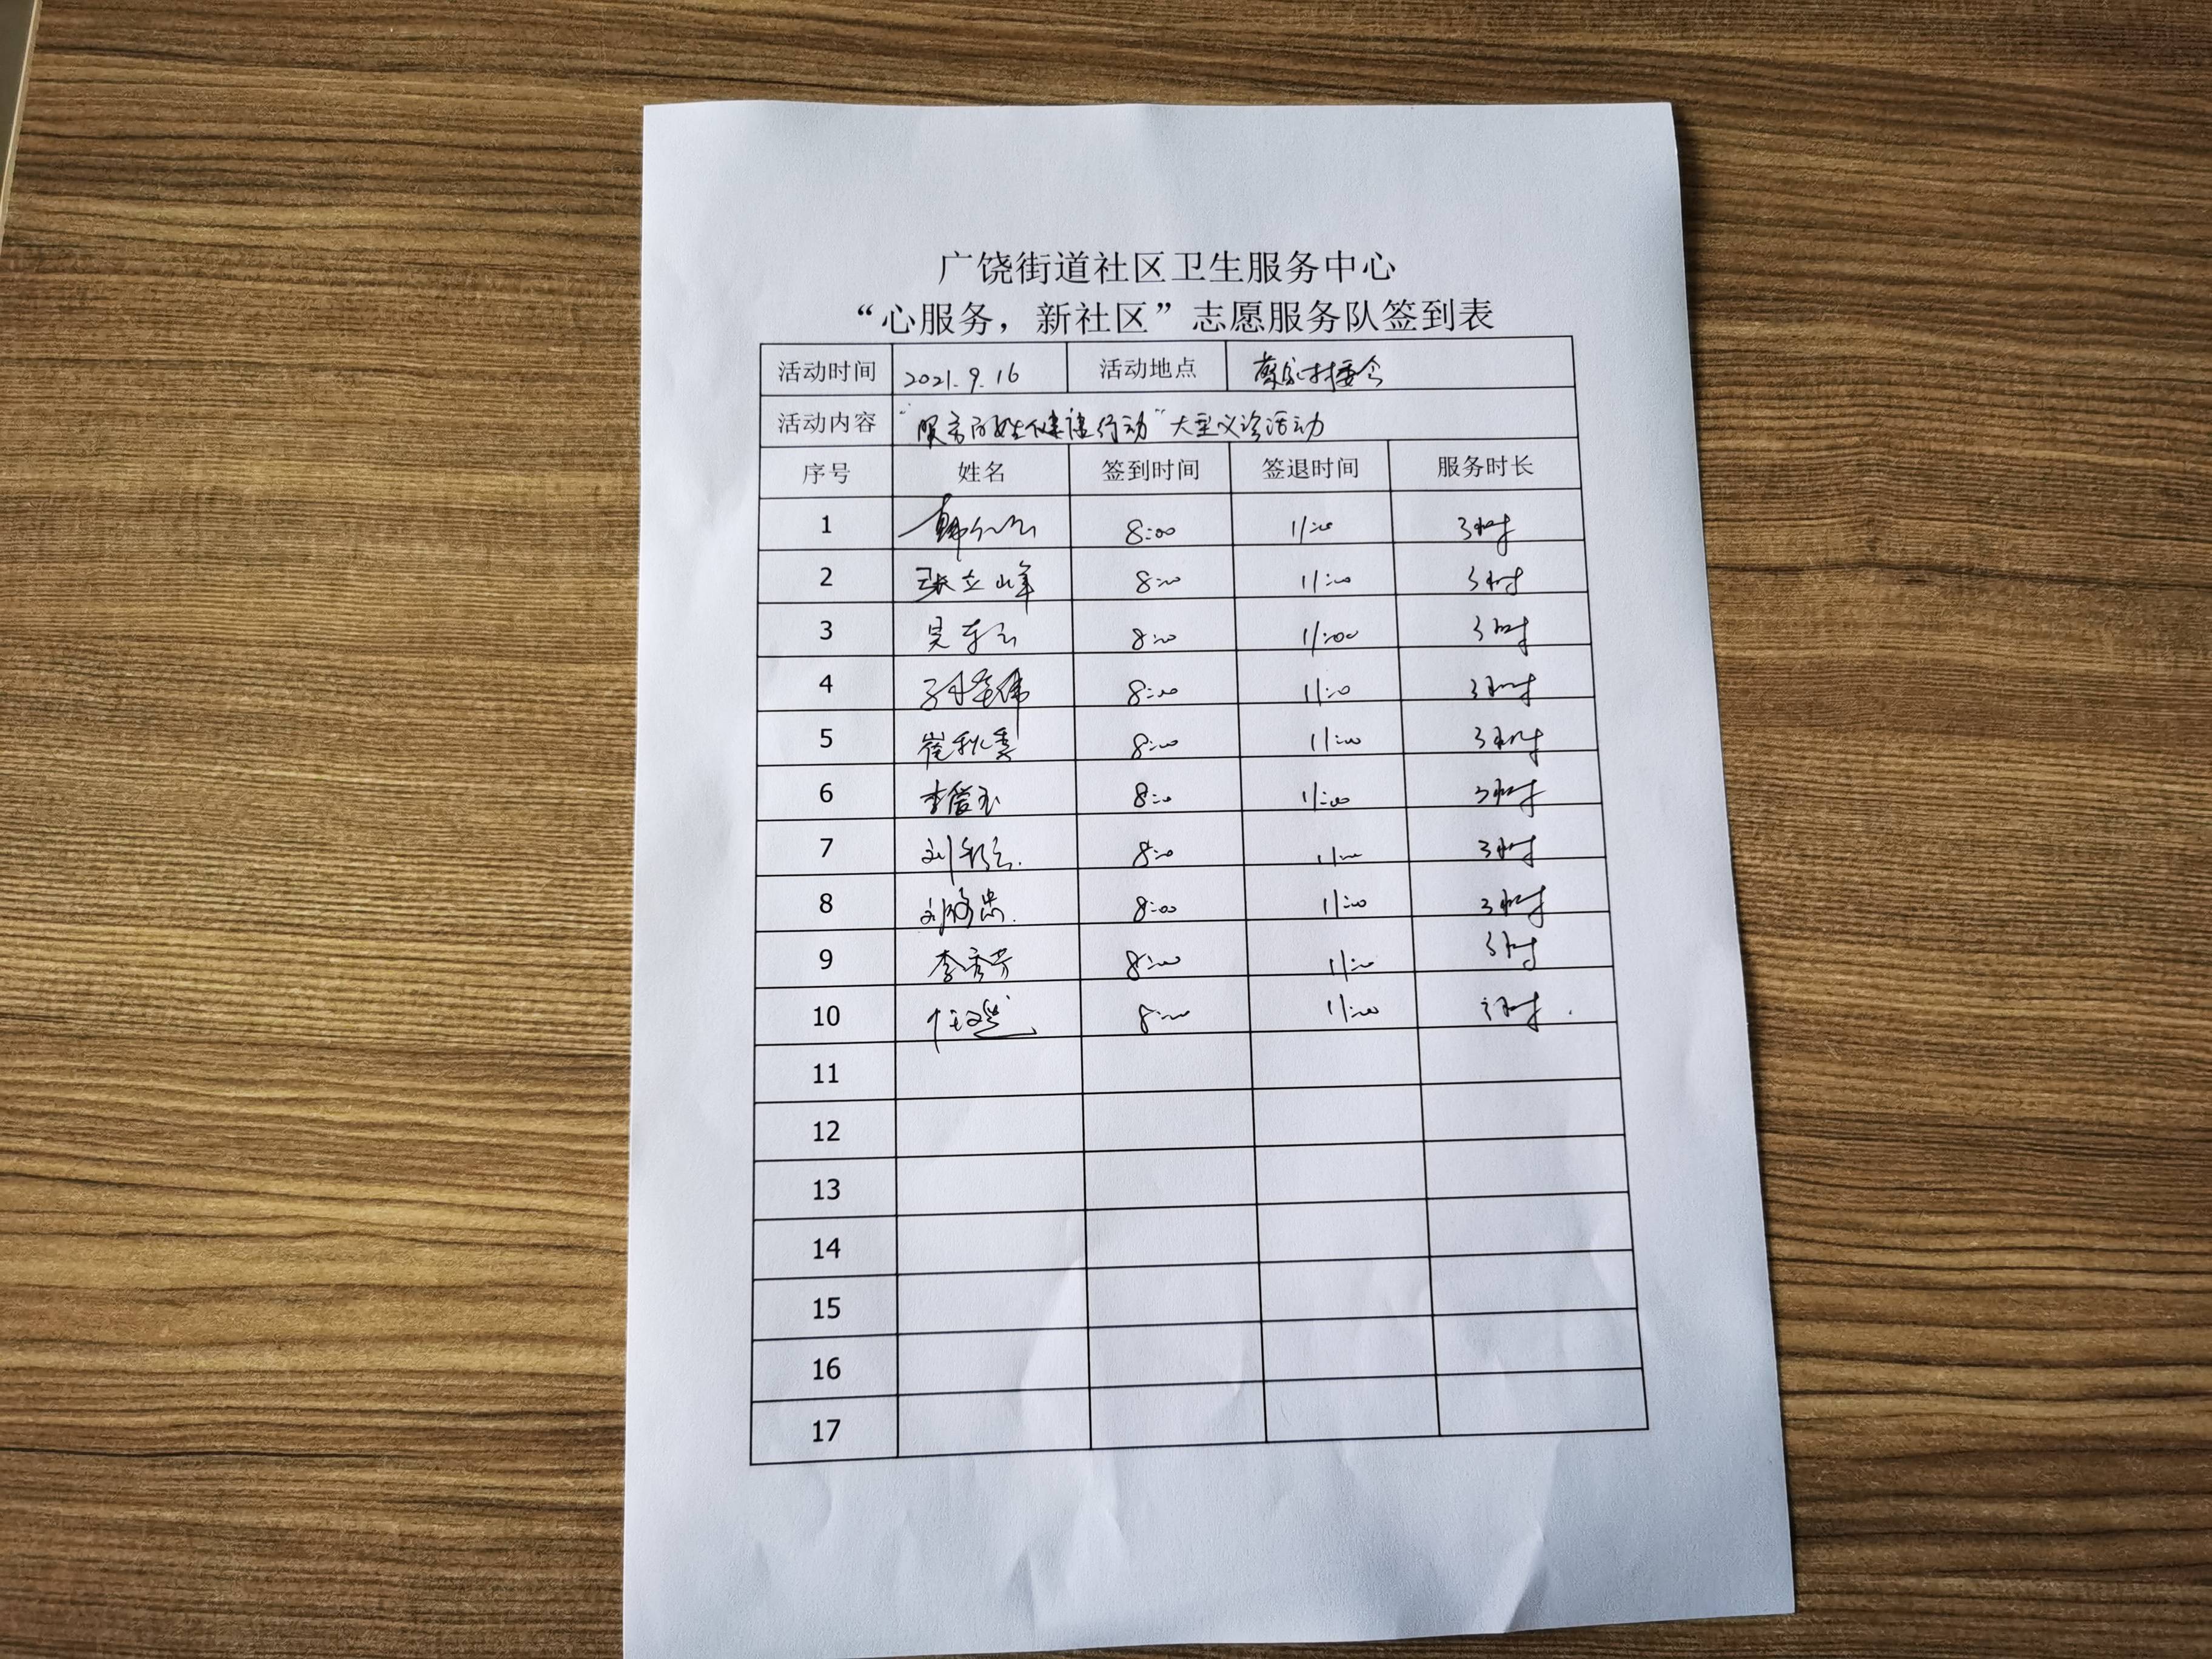 广饶街道社区卫生服务中心
“心服务，新社区”志愿服务队签到表
活动时间 2021.9.16 活动地点 蔡家村委会
活动内容 “服务百姓健康行动”大型义诊活动
序号 姓名 签到时间 签退时间 服务时长
1 8:00 11:00 3小时
2 张立峰 8:00 11:00 3小时
3 吴 8:00 11:00 3小时
4 孙 伟 8:00 11:00 3小时
5 崔秋季 8:00 11:00 3小时
6 李爱玉 8:00 11:00 3小时
7 刘 8:00 11:00 3小时
8 刘 忠 8:00 11:00 3小时
9 李秀芳 8:00 11:00 3小时
10 任 8:00 11:00 3小时
11
12
13
14
15
16
17